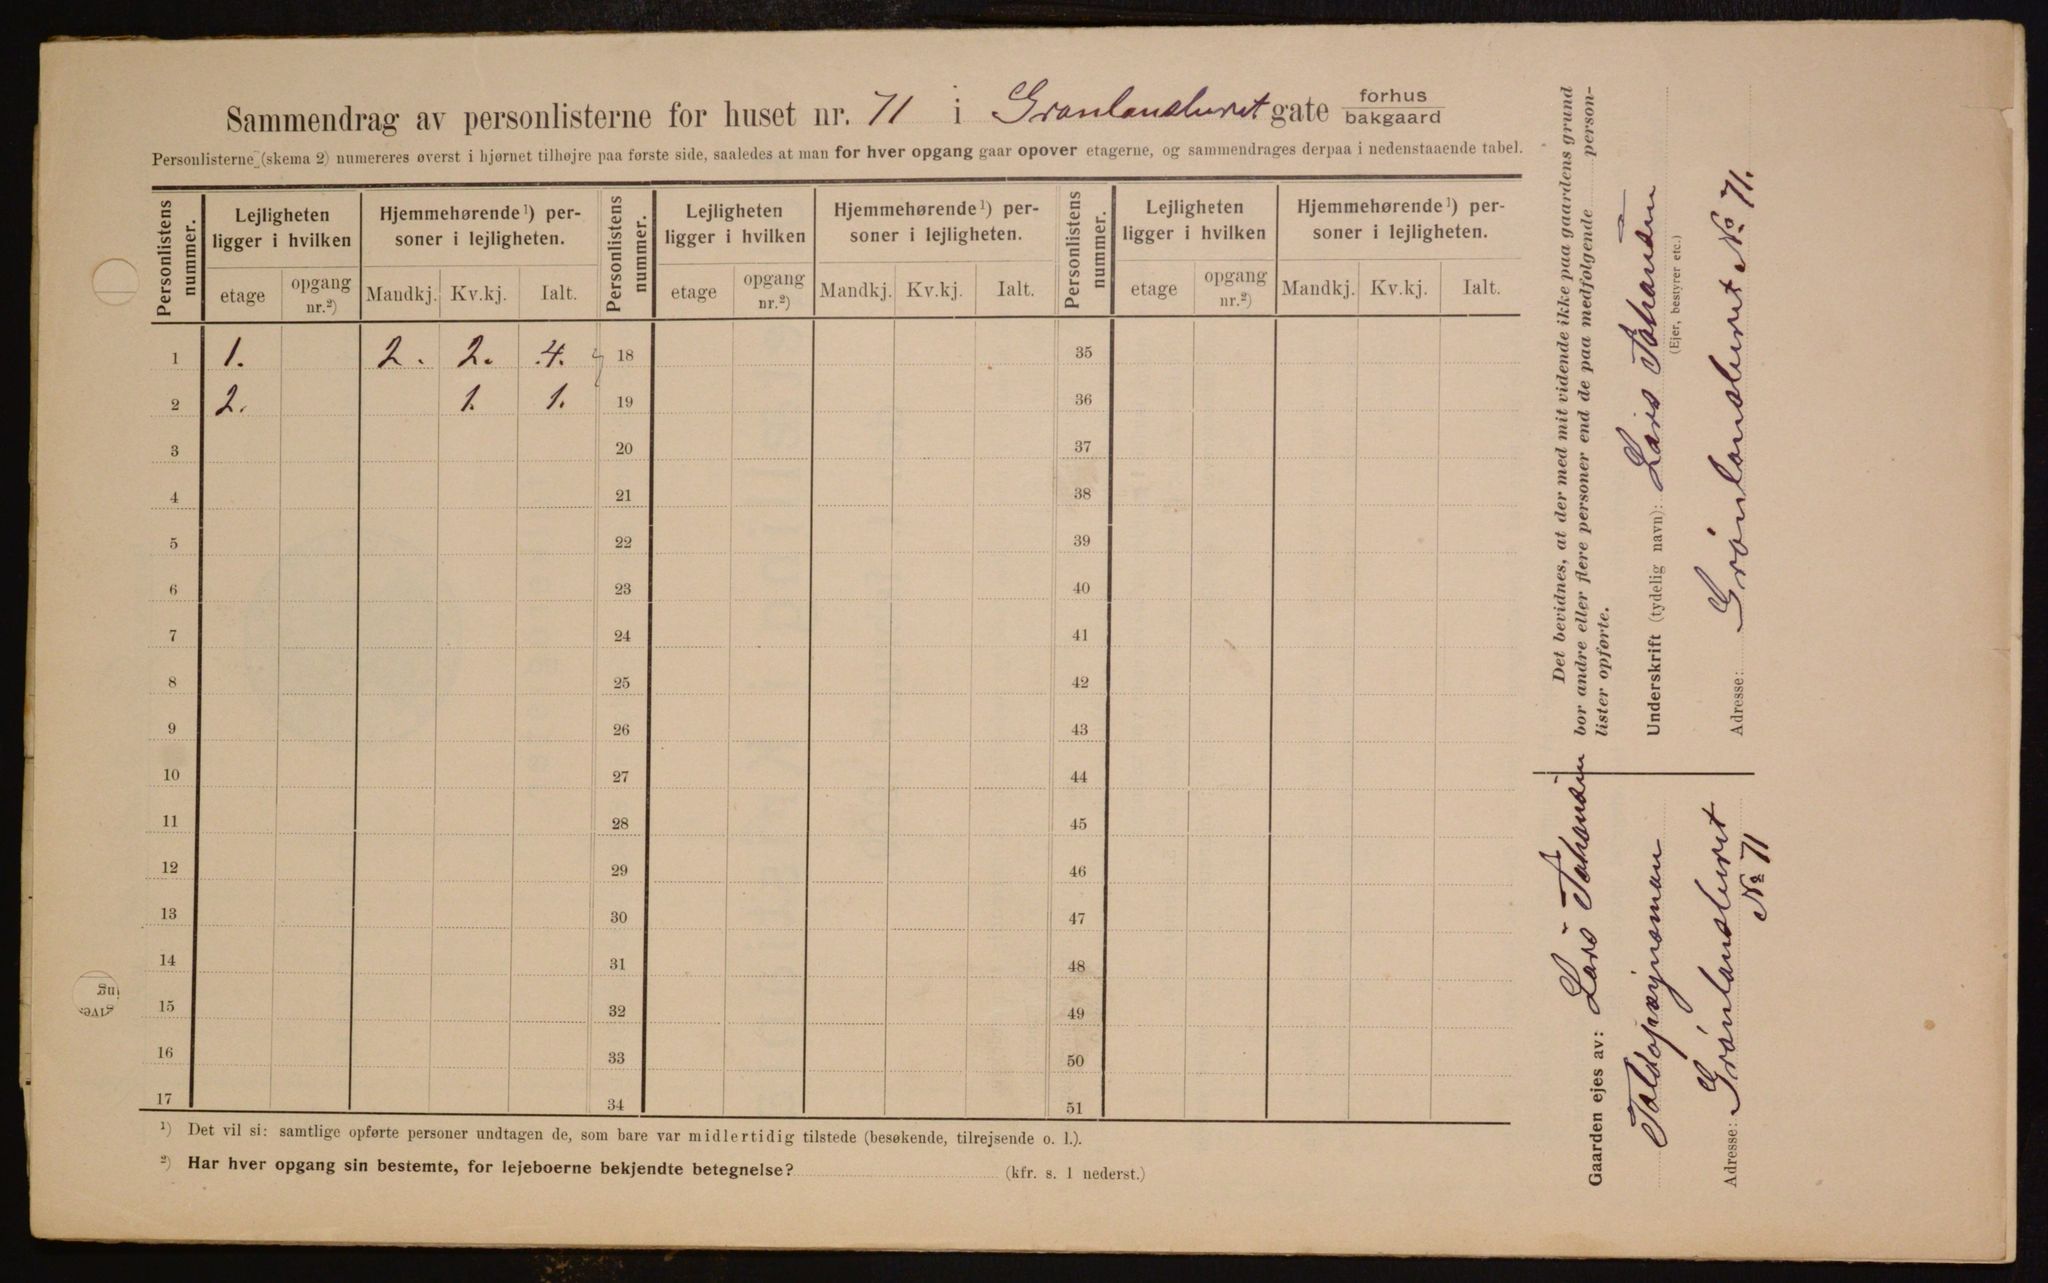 Sammendrag av personlisterne for huset nr. 71 i Grønlandsleret gate forhus
bakgaard
Personlisterne (skema 2) numereres øverst i hjørnet tilhøjre paa første side, saaledes at man for hver opgang gaar opover etagerne, og sammendrages derpaa i nedenstaaende tabel.
Personlistens nummer. Lejligheten ligger i hvilken Hjemmehørende ¹) personer i lejligheten. Personlistens nummer. Lejligheten ligger i hvilken Hjemmehørende ¹) personer i lejligheten. Personlistens nummer. Lejligheten ligger i hvilken Hjemmehørende ¹) personer i lejligheten.
etage opgang nr.²) Mandkj. Kv.kj. Ialt. etage opgang nr.²) Mandkj. Kv.kj. Ialt. etage opgang nr.²) Mandkj. Kv.kj. Ialt.
1 1. 2. 2. 4. 18 35
2 2. 1. 1. 19 36
3 20 37
4 21 38
5 22 39
6 23 40
7 24 41
8 25 42
9 26 43
10 27 44
11 28 45
12 29 46
13 30 47
14 31 48
15 32 49
16 33 50
17 34 51
¹) Det vil si: samtlige opførte personer undtagen de, som bare var midlertidig tilstede (besøkende, tilrejsende o. l.).
²) Har hver opgang sin bestemte, for lejeboerne bekjendte betegnelse? (kfr. s. 1 nederst.)
Det bevidnes, at der med mit vidende ikke paa gaardens grund
bor andre eller flere personer end de paa medfølgende person-
lister opførte.
Underskrift (tydelig navn): Lars Johansen
(Ejer, bestyrer etc.)
Adresse: Grønlandsleret No 71.
Gaarden ejes av: Lars Johansen
Adresse: Grønlandsleret
No 71